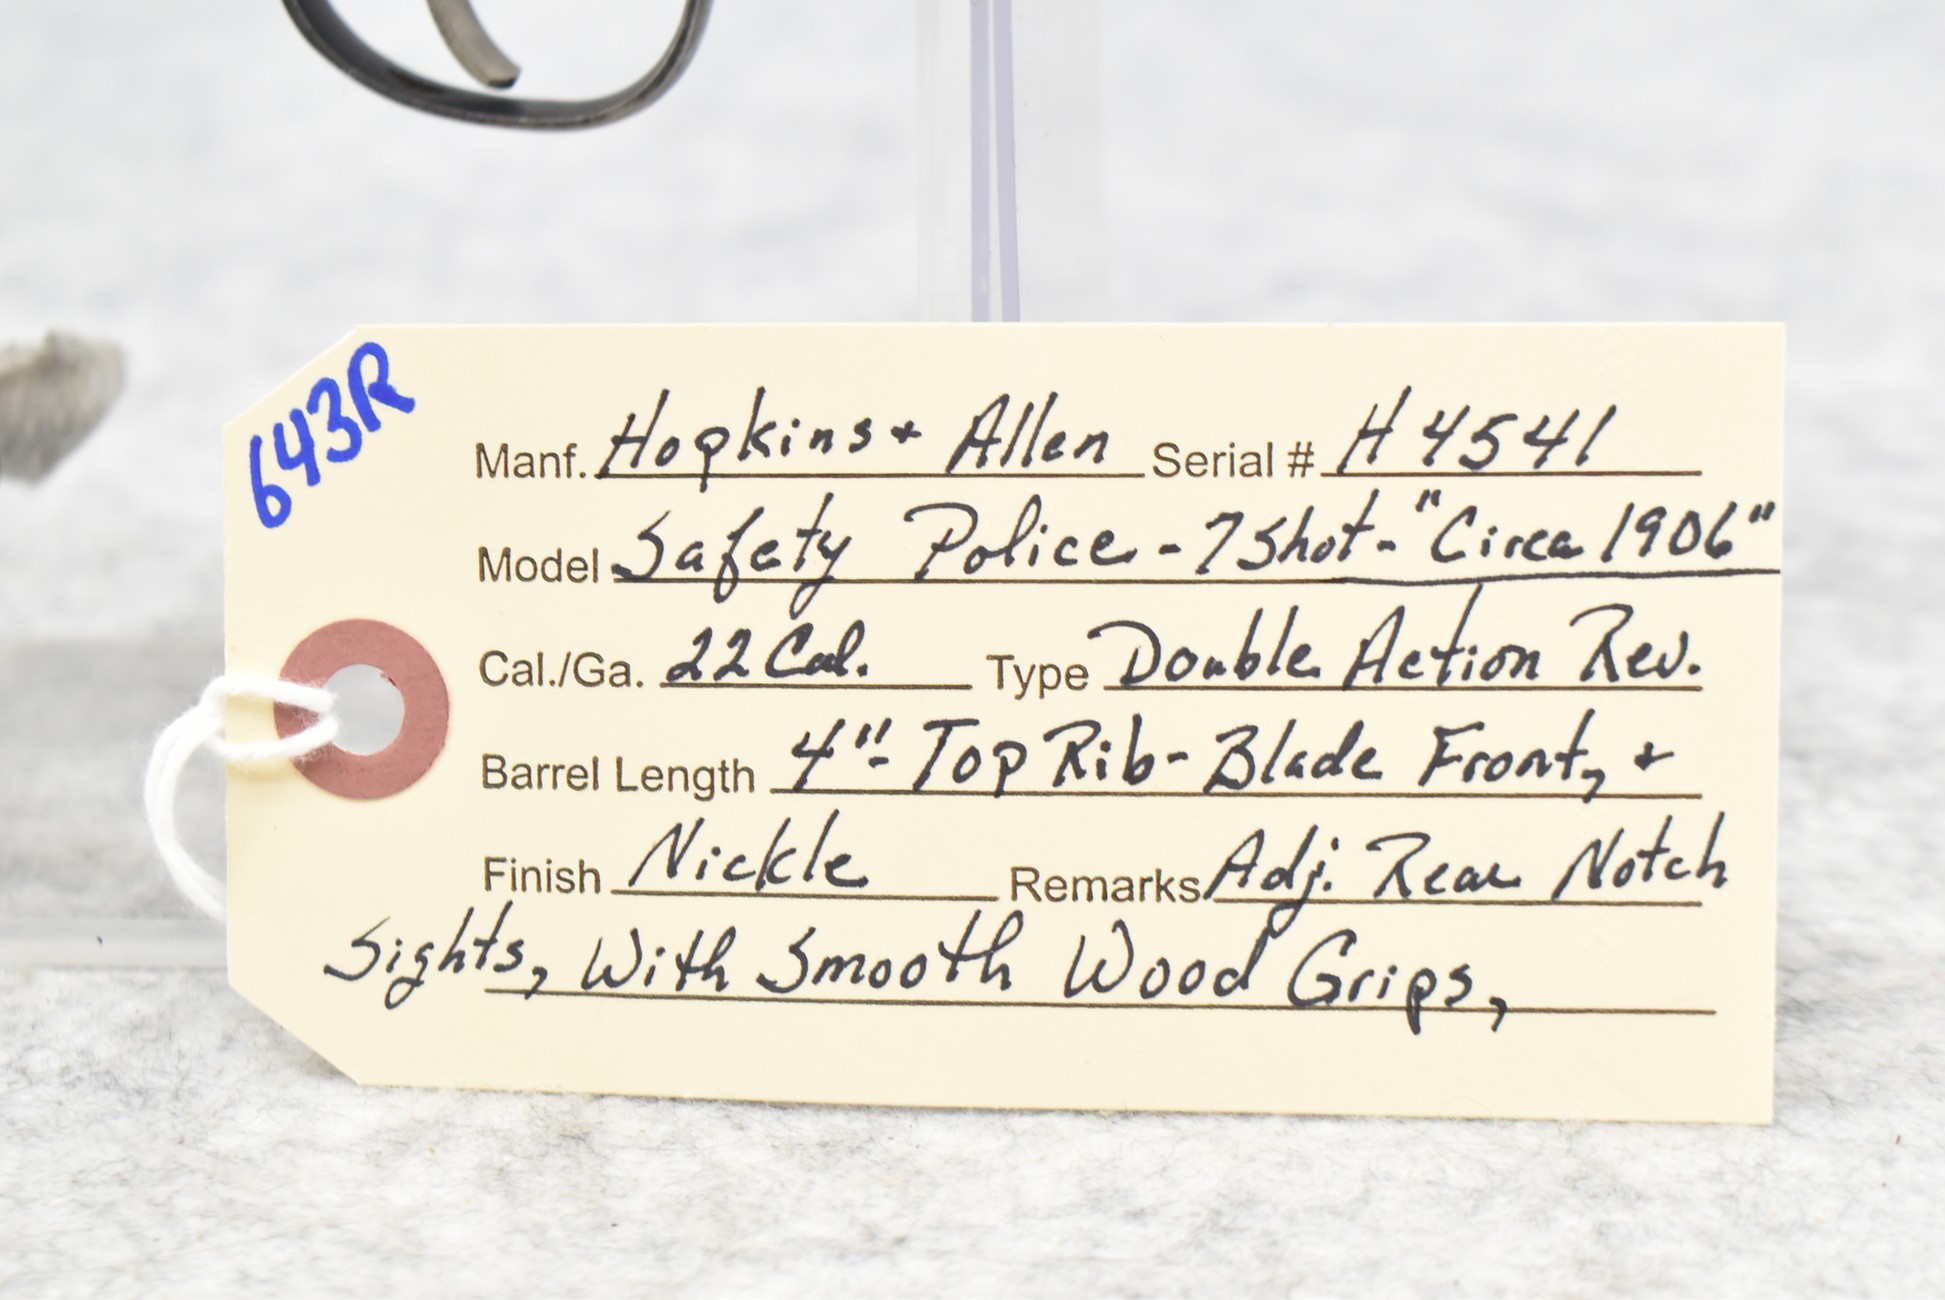 643R
Manf. Hopkins + Allen Serial # H4541
Model Safety Police - 7 Shot - "Circa 1906"
Cal./Ga. 22 Cal. Type Double Action Rev.
Barrel Length 4" - Top Rib - Blade Front, +
Finish Nickle Remarks Adj. Rear Notch
Sights, With Smooth Wood Grips,